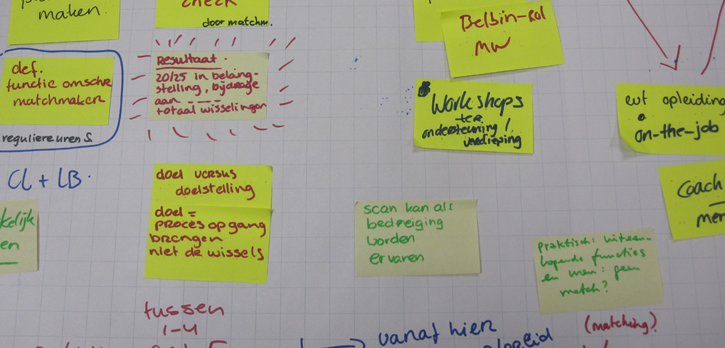 maken.
check
door matchm.
def.
functie omschr
matchmaker
reguliere uren S
Resultaat.
20/25 in belang-
stelling, bijdrage
aan ----
totaal wisselingen
Belbin-rol
MW
Workshops
ter
ondersteuning /
verdieping
evt opleiding
on-the-job
CL + LB.
kelijk
en
doel versus
doelstelling
doel =
proces op gang
brengen
niet de wissels
scan kan als
bedreiging
worden
ervaren
Coach
men
Praktisch: uiteen-
lopende functies
en men: geen
match?
tussen
1-4
vanaf hier
(matching)